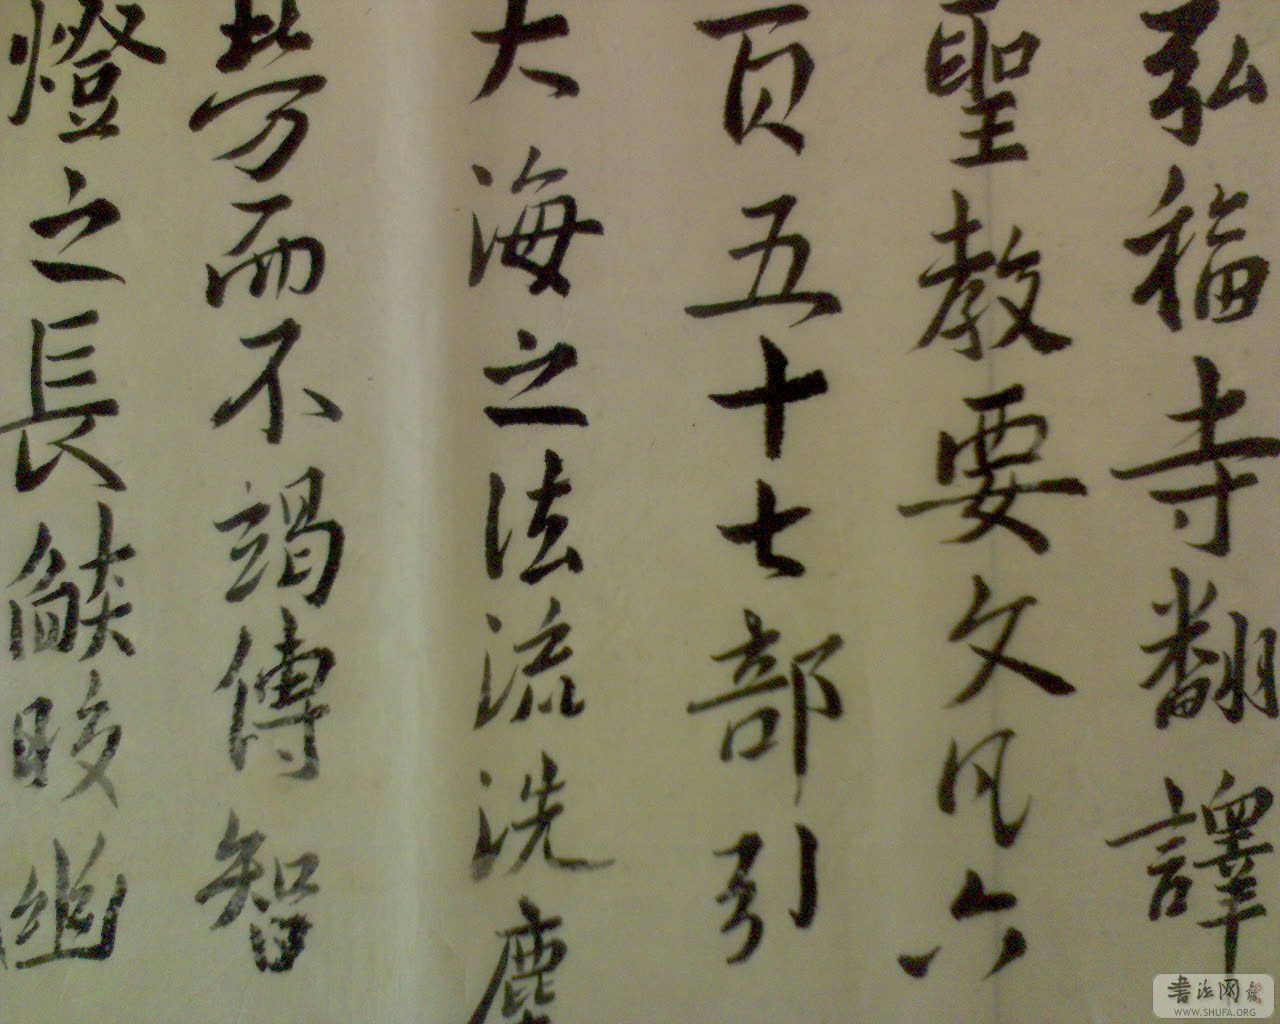 弘福寺翻譯
聖教要文凡六
百五十七部引
大海之法流洗塵
勞而不竭傳智
燈之長燄皎幽
書法网
WWW.SHUFA.ORG